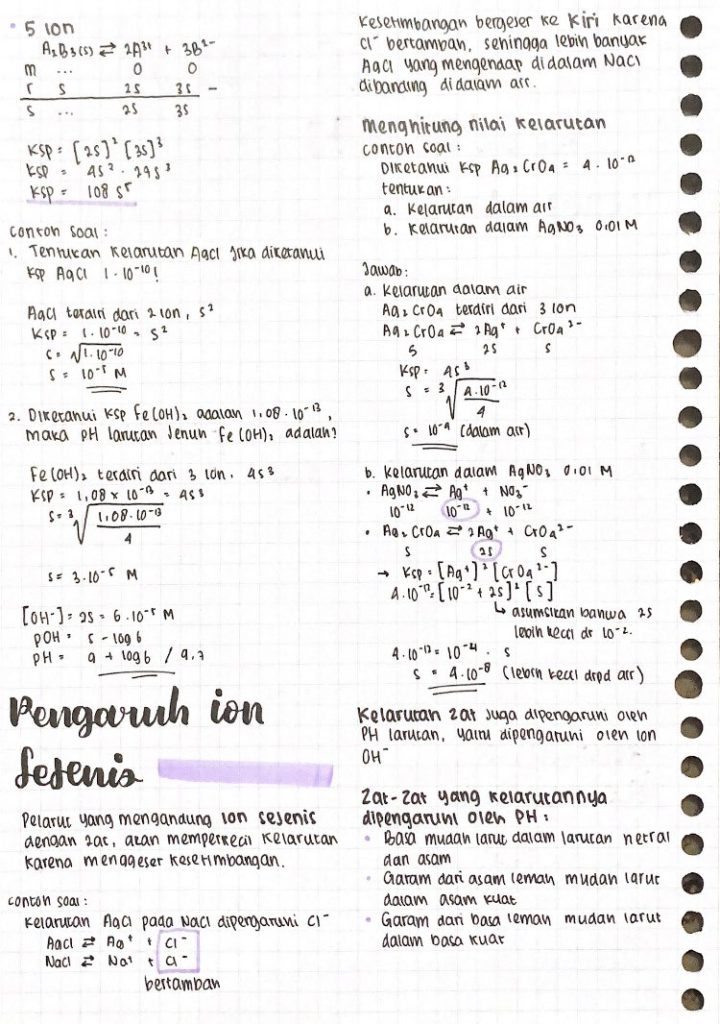 • 5 ion
A₂B₃(s) ⇄ 2A³⁺ + 3B²⁻
m ... 0 0
r s 2s 3s -
s ... 2s 3s
Ksp = [2s]² [3s]³
Ksp = 4s² . 27s³
Ksp = 108 s⁵
contoh soal :
1. Tentukan Kelarutan AgCl jika diketahui
Ksp AgCl 1 . 10⁻¹⁰!
AgCl terdiri dari 2 ion, s²
Ksp = 1 . 10⁻¹⁰ = s²
s = √1.10⁻¹⁰
s = 10⁻⁵ M
2. Diketahui Ksp Fe(OH)₂ adalah 1,08 . 10⁻¹³,
maka pH larutan Jenuh Fe(OH)₂ adalah?
Fe(OH)₂ terdiri dari 3 ion, 4s³
Ksp = 1,08 x 10⁻¹³ = 4s³
s = ³√1,08.10⁻¹³
4
s = 3.10⁻⁵ M
[OH⁻] = 2s = 6.10⁻⁵ M
pOH = 5 - log 6
pH = 9 + log 6 / 9,7
Pengaruh ion
Sejenis
Pelarut yang mengandung ion sejenis
dengan zat, akan memperkecil kelarutan
karena menggeser kesetimbangan.
contoh soal :
Kelarutan AgCl pada NaCl dipengaruhi Cl⁻
AgCl ⇄ Ag⁺ + Cl⁻
NaCl ⇄ Na⁺ + Cl⁻
bertambah
Kesetimbangan bergeser ke Kiri karena
Cl⁻ bertambah, sehingga lebih banyak
AgCl yang mengendap didalam NaCl
dibanding didalam air.
Menghitung nilai kelarutan
contoh soal :
Diketahui Ksp Ag₂CrO₄ = 4 . 10⁻¹²
tentukan :
a. Kelarutan dalam air
b. Kelarutan dalam AgNO₃ 0,01 M
Jawab :
a. Kelarutan dalam air
Ag₂CrO₄ terdiri dari 3 ion
Ag₂CrO₄ ⇄ 2Ag⁺ + CrO₄²⁻
s 2s s
Ksp = 4s³
s = ³√4.10⁻¹²
4
s = 10⁻⁴ (dalam air)
b. Kelarutan dalam AgNO₃ 0,01 M
• AgNO₃ ⇄ Ag⁺ + NO₃⁻
10⁻¹² 10⁻¹² + 10⁻¹²
• Ag₂CrO₄ ⇄ 2Ag⁺ + CrO₄²⁻
s 2s s
→ Ksp = [Ag⁺]² [CrO₄²⁻]
4.10⁻¹² = [10⁻² + 2s]² [s]
↳ asumsikan bahwa 2s
lebih kecil dr 10⁻².
4.10⁻¹² = 10⁻⁴ . s
s = 4.10⁻⁸ (lebih kecil drpd air)
Kelarutan zat juga dipengaruhi oleh
PH larutan, yaitu dipengaruhi oleh ion
OH⁻
Zat-Zat yang kelarutannya
dipengaruhi oleh PH :
• Basa mudah larut dalam larutan netral
dan asam
• Garam dari asam lemah mudah larut
dalam asam kuat
• Garam dari basa lemah mudah larut
dalam basa kuat